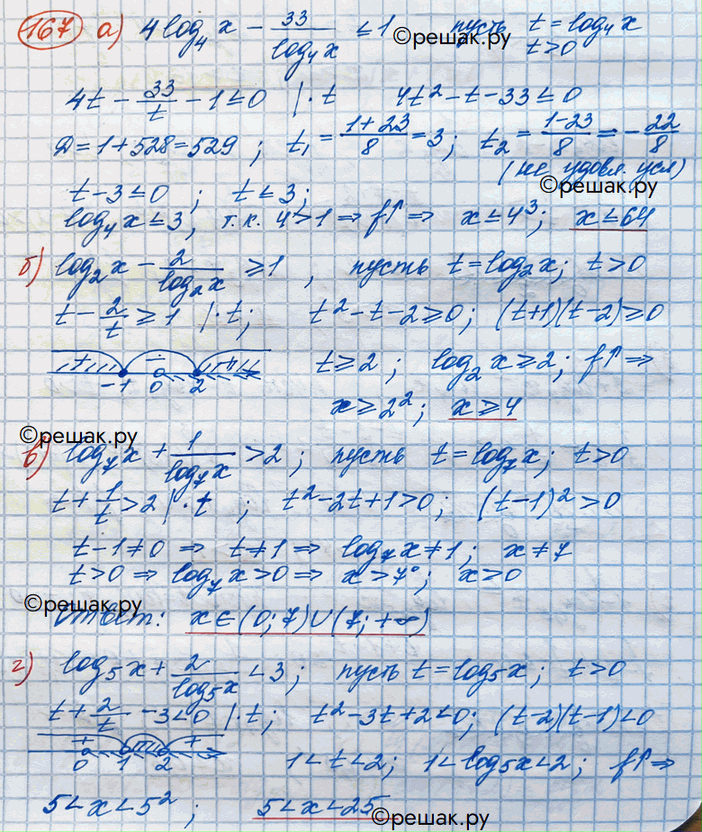 167 а) 4log₄x − 33/log₄x ≤ 1 ©решак.ру пусть t = log₄x
t>0
4t − 33/t − 1 ≤ 0 | · t 4t² − t − 33 ≤ 0
D = 1 + 528 = 529 ; t₁ = (1+23)/8 = 3 ; t₂ = (1−23)/8 = −22/8
(не удовл. усл)
©решак.ру
t − 3 ≤ 0 ; t ≤ 3 ;
log₄x ≤ 3, т.к. 4 > 1 ⇒ f↑ ⇒ x ≤ 4³ ; x ≤ 64
б) log₂x − 2/log₂x ≥ 1 , пусть t = log₂x ; t > 0
t − 2/t ≥ 1 | · t ; t² − t − 2 ≥ 0 ; (t+1)(t−2) ≥ 0
+ − +
−1 0 2 t ≥ 2 ; log₂x ≥ 2 ; f↑ ⇒
x ≥ 2² ; x ≥ 4
©решак.ру
в) log₇x + 1/log₇x > 2 ; пусть t = log₇x ; t > 0
t + 1/t > 2 | · t ; t² − 2t + 1 > 0 ; (t−1)² > 0
t − 1 ≠ 0 ⇒ t ≠ 1 ⇒ log₇x ≠ 1 ; x ≠ 7
t > 0 ⇒ log₇x > 0 ⇒ x > 7⁰ ; x > 0
©решак.ру
Ответ: x ∈ (0; 7) ∪ (7; +∞)
г) log₅x + 2/log₅x < 3 ; пусть t = log₅x ; t > 0
t + 2/t − 3 < 0 | · t ; t² − 3t + 2 < 0 ; (t−2)(t−1) < 0
+ − +
0 1 2 1 < t < 2 ; 1 < log₅x < 2 ; f↑ ⇒
5 < x < 5² ; 5 < x < 25
©решак.ру